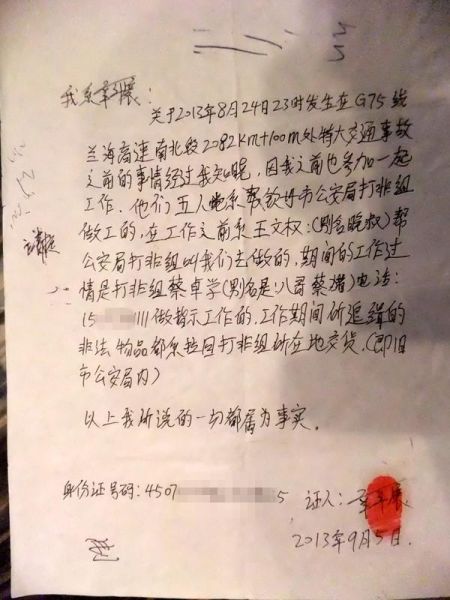 我系韦展：
关于2013年8月24日23时发生在G75线
兰海高速南北段2082km+100m处特大交通事故
之前的事情经过我知晓，因我之前也参加一起
工作，他们五人也系帮钦州市公安局打非组
做工的，在工作之前系王文权：（别名晚叔）帮
公安局打非组叫我们去做的，期间的工作过
情是打非组蔡卓学（别名是：八哥蔡潴）电话：
15 111做指示工作的，工作期间所追缉的
非法物品都系拉回打非组所在地交货，（即旧
市公安局内）
以上我所说的一切都属为事实。
身份证号码：4507 5
证人：
2013年9月5日.